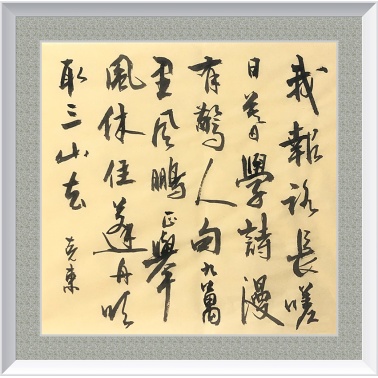 我報路長嗟
日暮學詩漫
有驚人句九萬
里風鵬正舉
風休住蓬舟吹
取三山去
克東